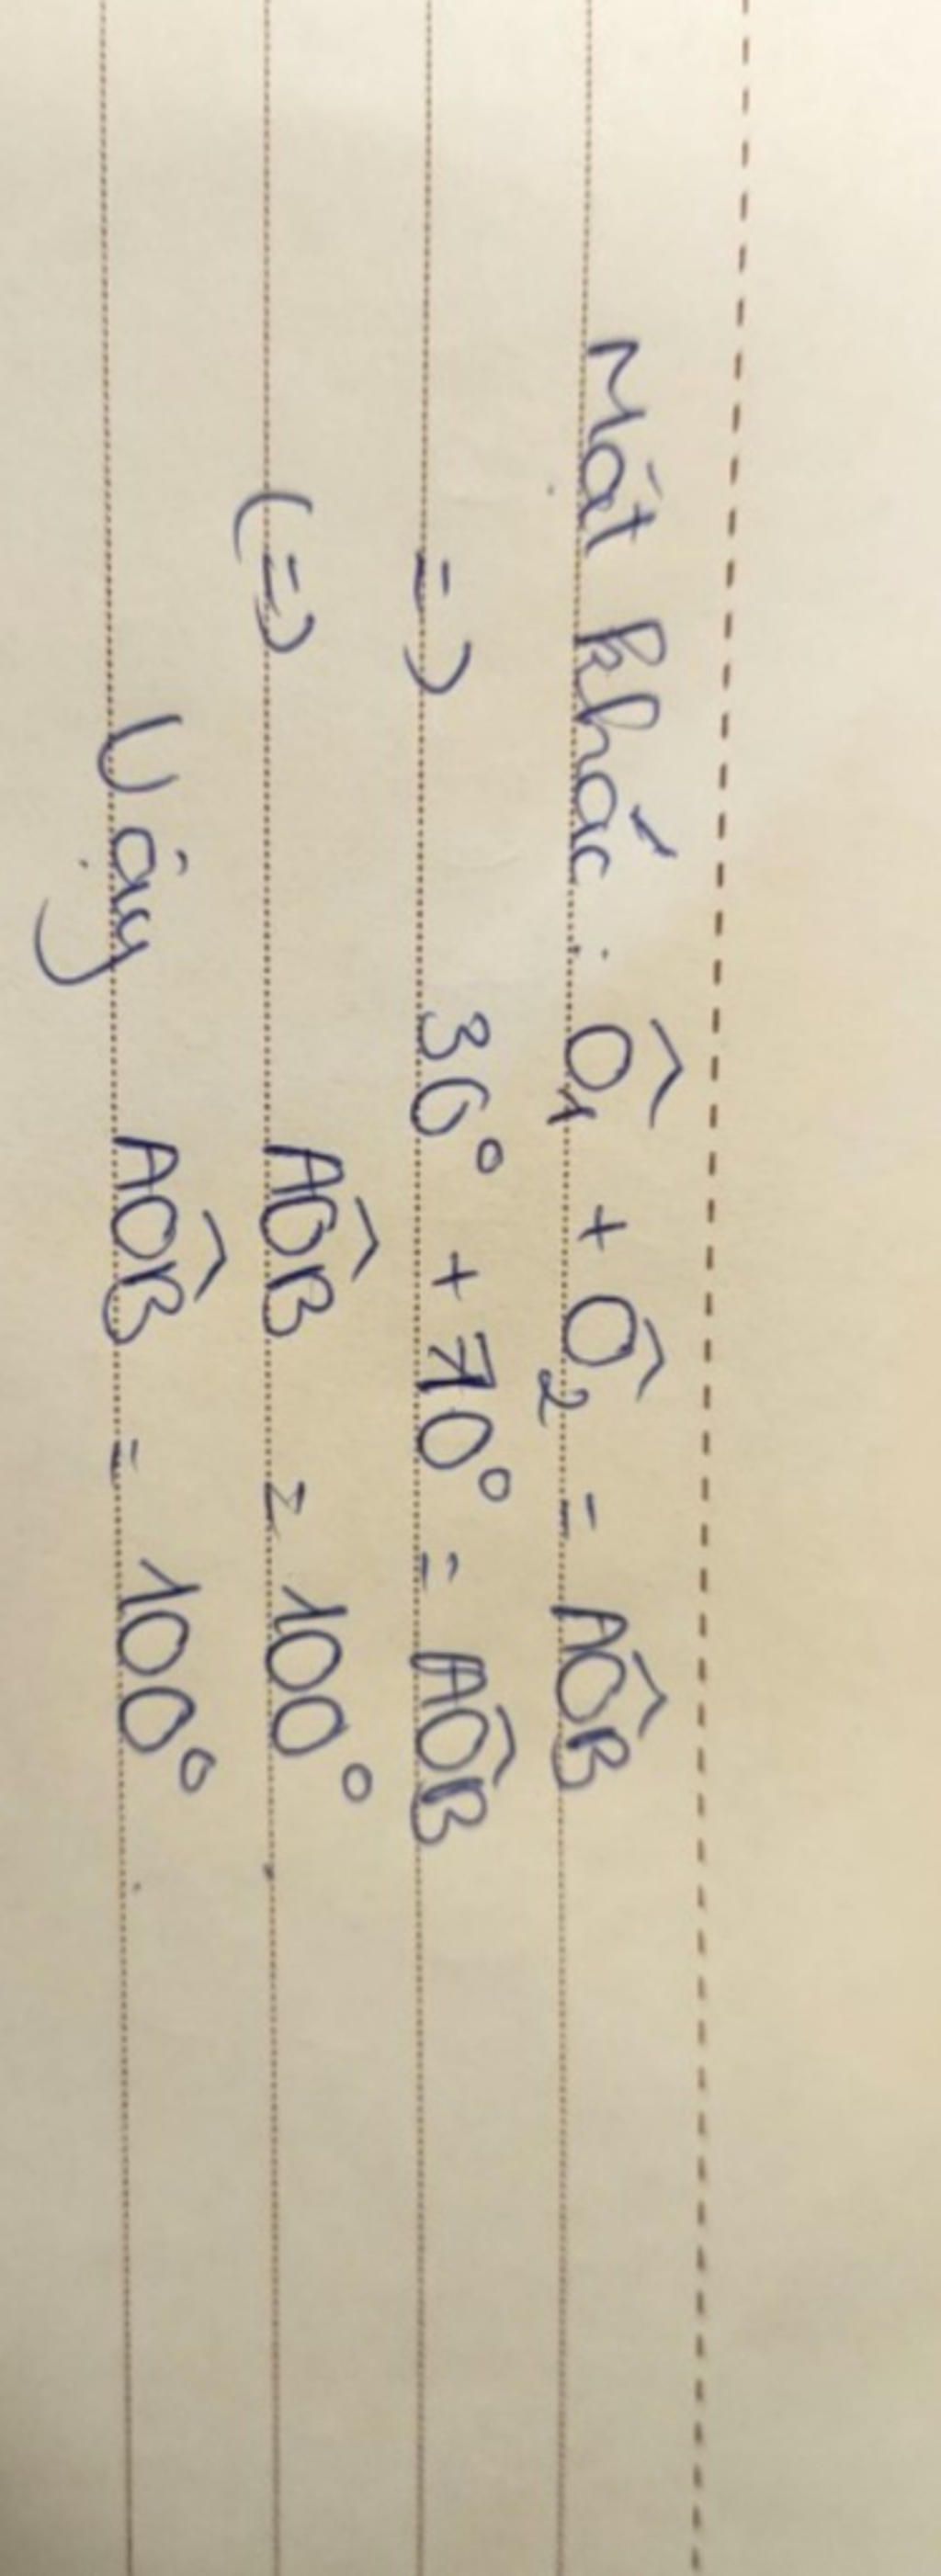 Mặt khác : Ô₁ + Ô₂ = AÔB
=> 30° + 70° = AÔB
(=> AÔB = 100°.
Vậy AÔB = 100°.